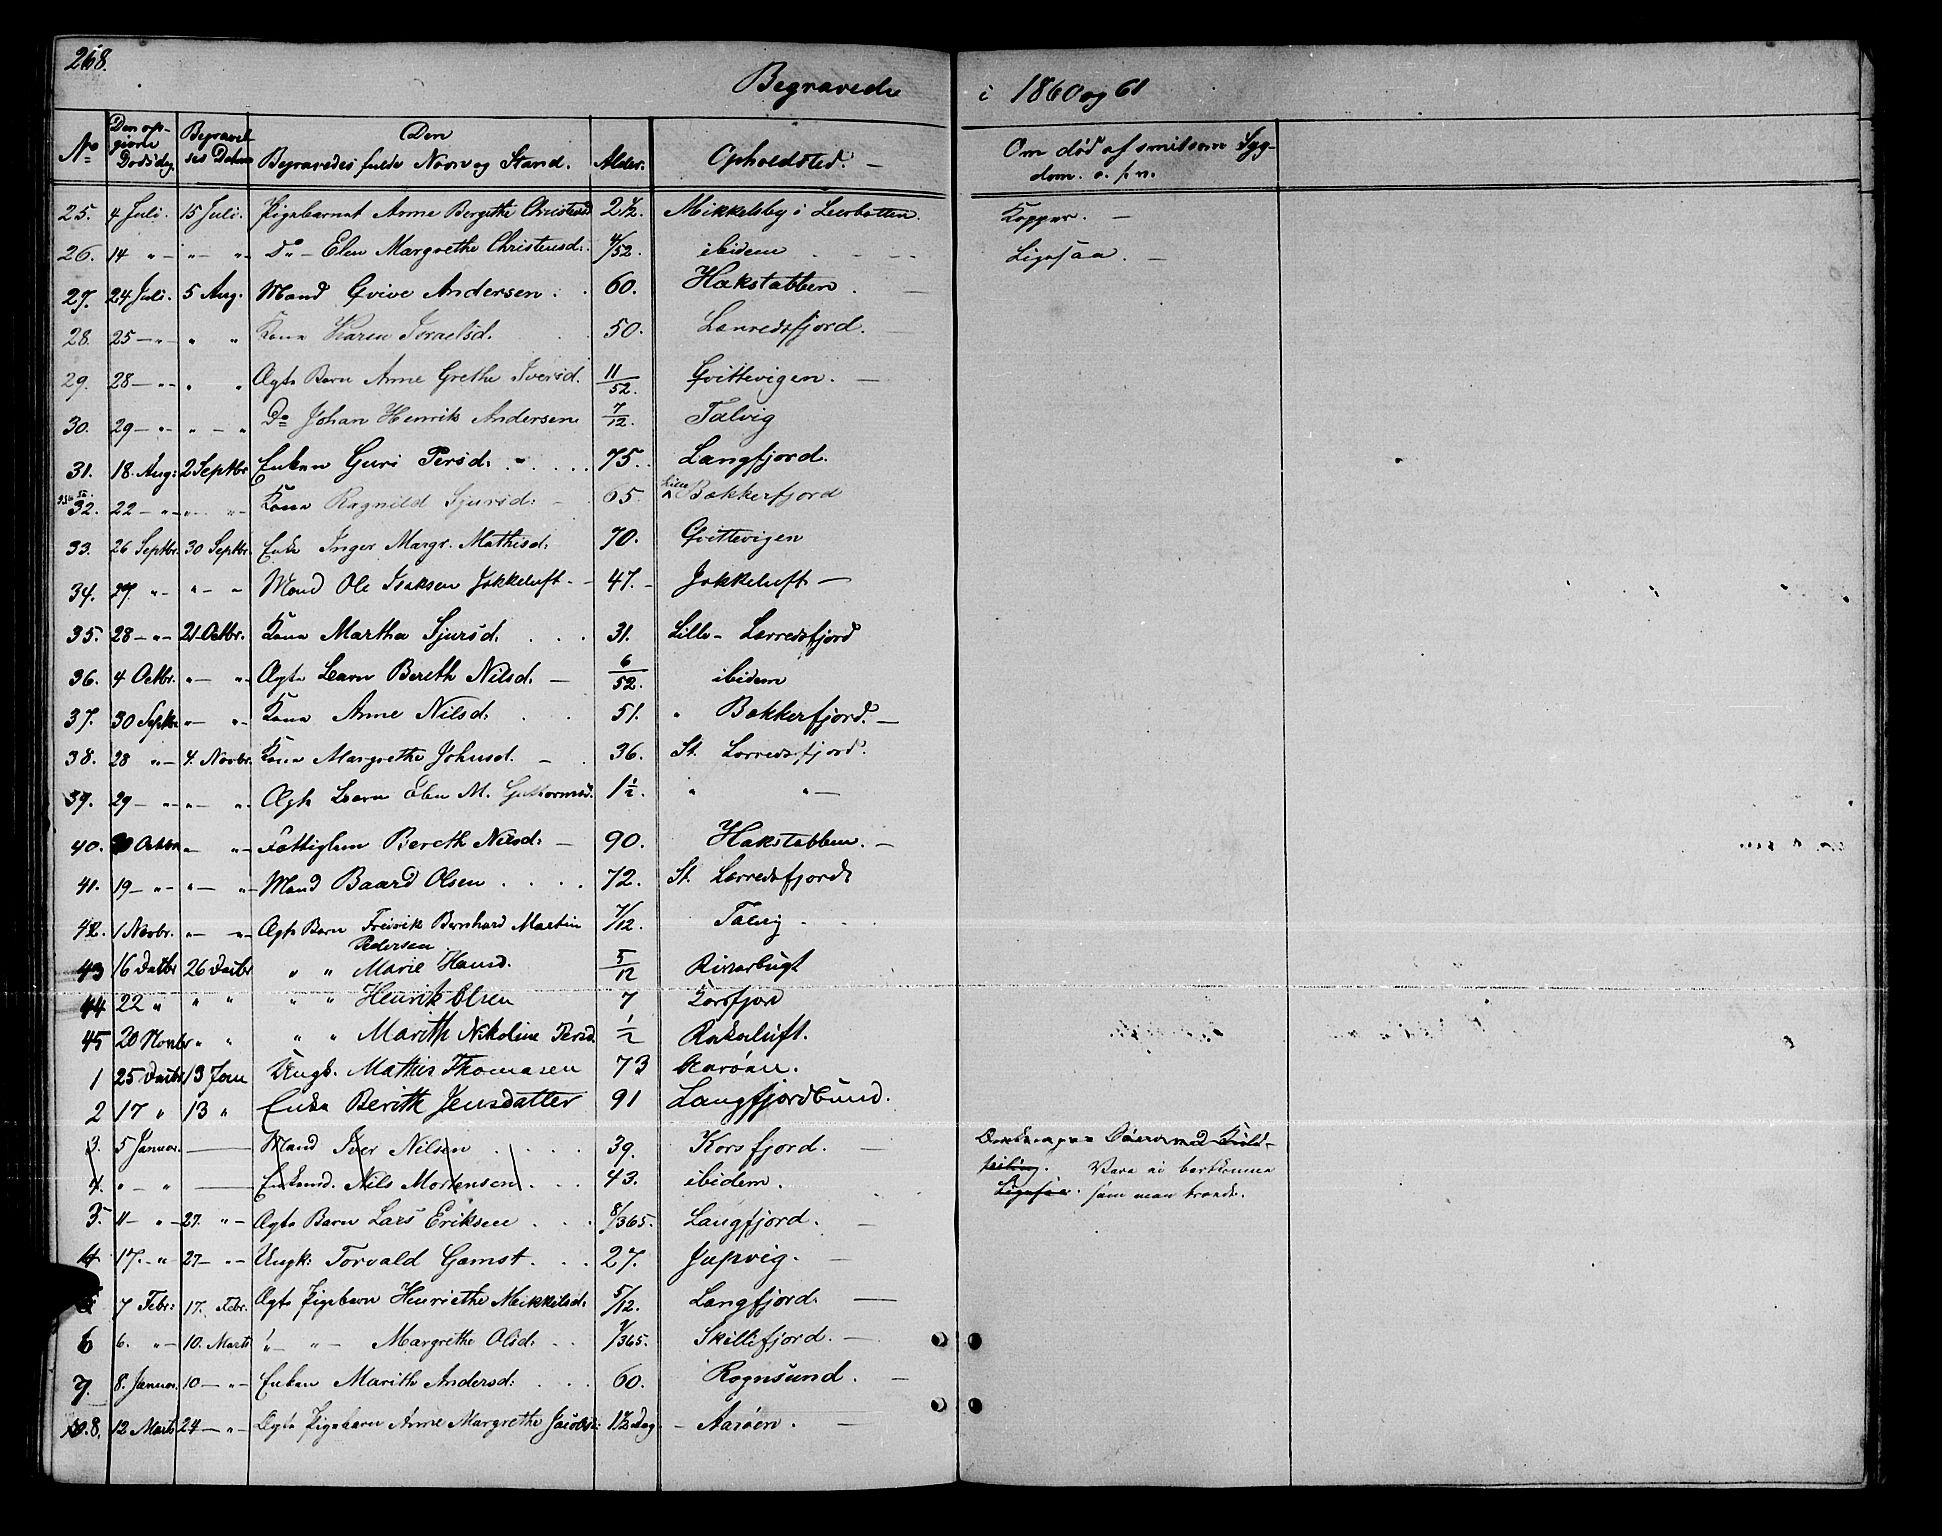 268.
Begravede i 1860 og 61
No Den opgivne Dødsdag Begravelses Datum Den Begravedes fulde Navn og Stand. Alder. Opholdsted. Om død af smitsom Sygdom. o. s. v.
25. 4 Juli. 15 Juli. Pigebarnet Anne Bergithe Christensd 2½. Mikkelsby i Leerbotten Kopper. —
26. 14 " — " — " — Do — Elen Margrethe Christensd: 4/52. ibidem Ligesaa. —
27. 24 Juli. 5 Aug. Mand Qvive Andersen. 60. Hakstabben. —
28. 25 — " — " " Kone Karen Israelsd. 50. Lærredsfjord. —
29. 28 — " — " " Ægte Barn Anne Grethe Iversd. 11/52. Qvittevigen. —
30. 29 — " — " — " Do Johan Henrik Andersen 7/12. Talvig
31. 18 Aug: 2 Septbr Enken Guri Persd. 75. Langfjord.
32. 22 — " — " — " — Kone Ragnild Sjursd: — 65. Lille Bækkerfjord
33. 26 Septbr. 30 Septbr. Enke Inger Margr. Mathisd: 70. Qvittevigen
34. 27. " — " — " Mand Ole Isaksen Jøkkeluft — 47. — Jøkkeluft —
35. 28 — " — 21 Octbr. Kone Martha Sjursd. 31. Lille — Lærredsfjord
36. 4 Octbr. " — " — Ægte Barn Bereth Nilsd. — 6/52. ibidem
37. 30 Septbr " — " — Kone Anne Nilsd: 51. " Bækkerfjord. —
38. 28 " — 4. Novbr. Kone Margrethe Johnsd. — 36. St. Lærredsfjord.
39. 29 — " — " — " — Ægte Barn Elen M. Guttormsd. 1½. " " —
40. Octbr " — " — Fattiglem Bereth Nilsd: — 90. Hakstabben. —
41. 19 — " — " — " — Mand Baard Olsen 72. St. Lærredsfjord
42. 1 Novbr. " — " — Ægte Barn Fredrik Bernhard Martin Pedersen 7/12. Talvig
43 16 Decbr 26 Decbr " " Marie Hansd. 5/12 Riverbugt
44 22 " " " " " Henrik Olsen 7 Korsfjord
45 20 Novbr " " " " Marith Nikoline Persd. ½ Rakeluft.
1 25 Decbr 13 Jan Ungk. Mathis Thomasen 73 Aarøen.
2 17 " 13 " Enke Berith Jensdatter 91 Langfjordbund.
3. 5 Januar. — Mand Iver Nilsen 39. Korsfjord. —
4. " — " — Enkemd. Nils Mortensen 43. ibidem. Ligesaa. Vare ei bortkomne som man troede.
3. 11 — " — 27. " — Ægte Barn Lars Eriksen 8/365. Langfjord. —
4 17. — " 27 — " — Ungk: Torvald Gamst. 27. Jupvig. —
7 Febr: 17. Febr. Ægte Pigebarn Henriethe Mikkelsd: 5/12. Langfjord. —
6 6. " — 10. Marts " — " — Margrethe Olsd: /365. Skillefjord. —
7. 8. Januar. 10 — " — Enken Marith Andersd: 60. Rognsund. —
8. 12 Marts 24 — " — Ægte Pigebarn Anne Margrethe Jacobsd: 1½ Dag — Aarøen. —